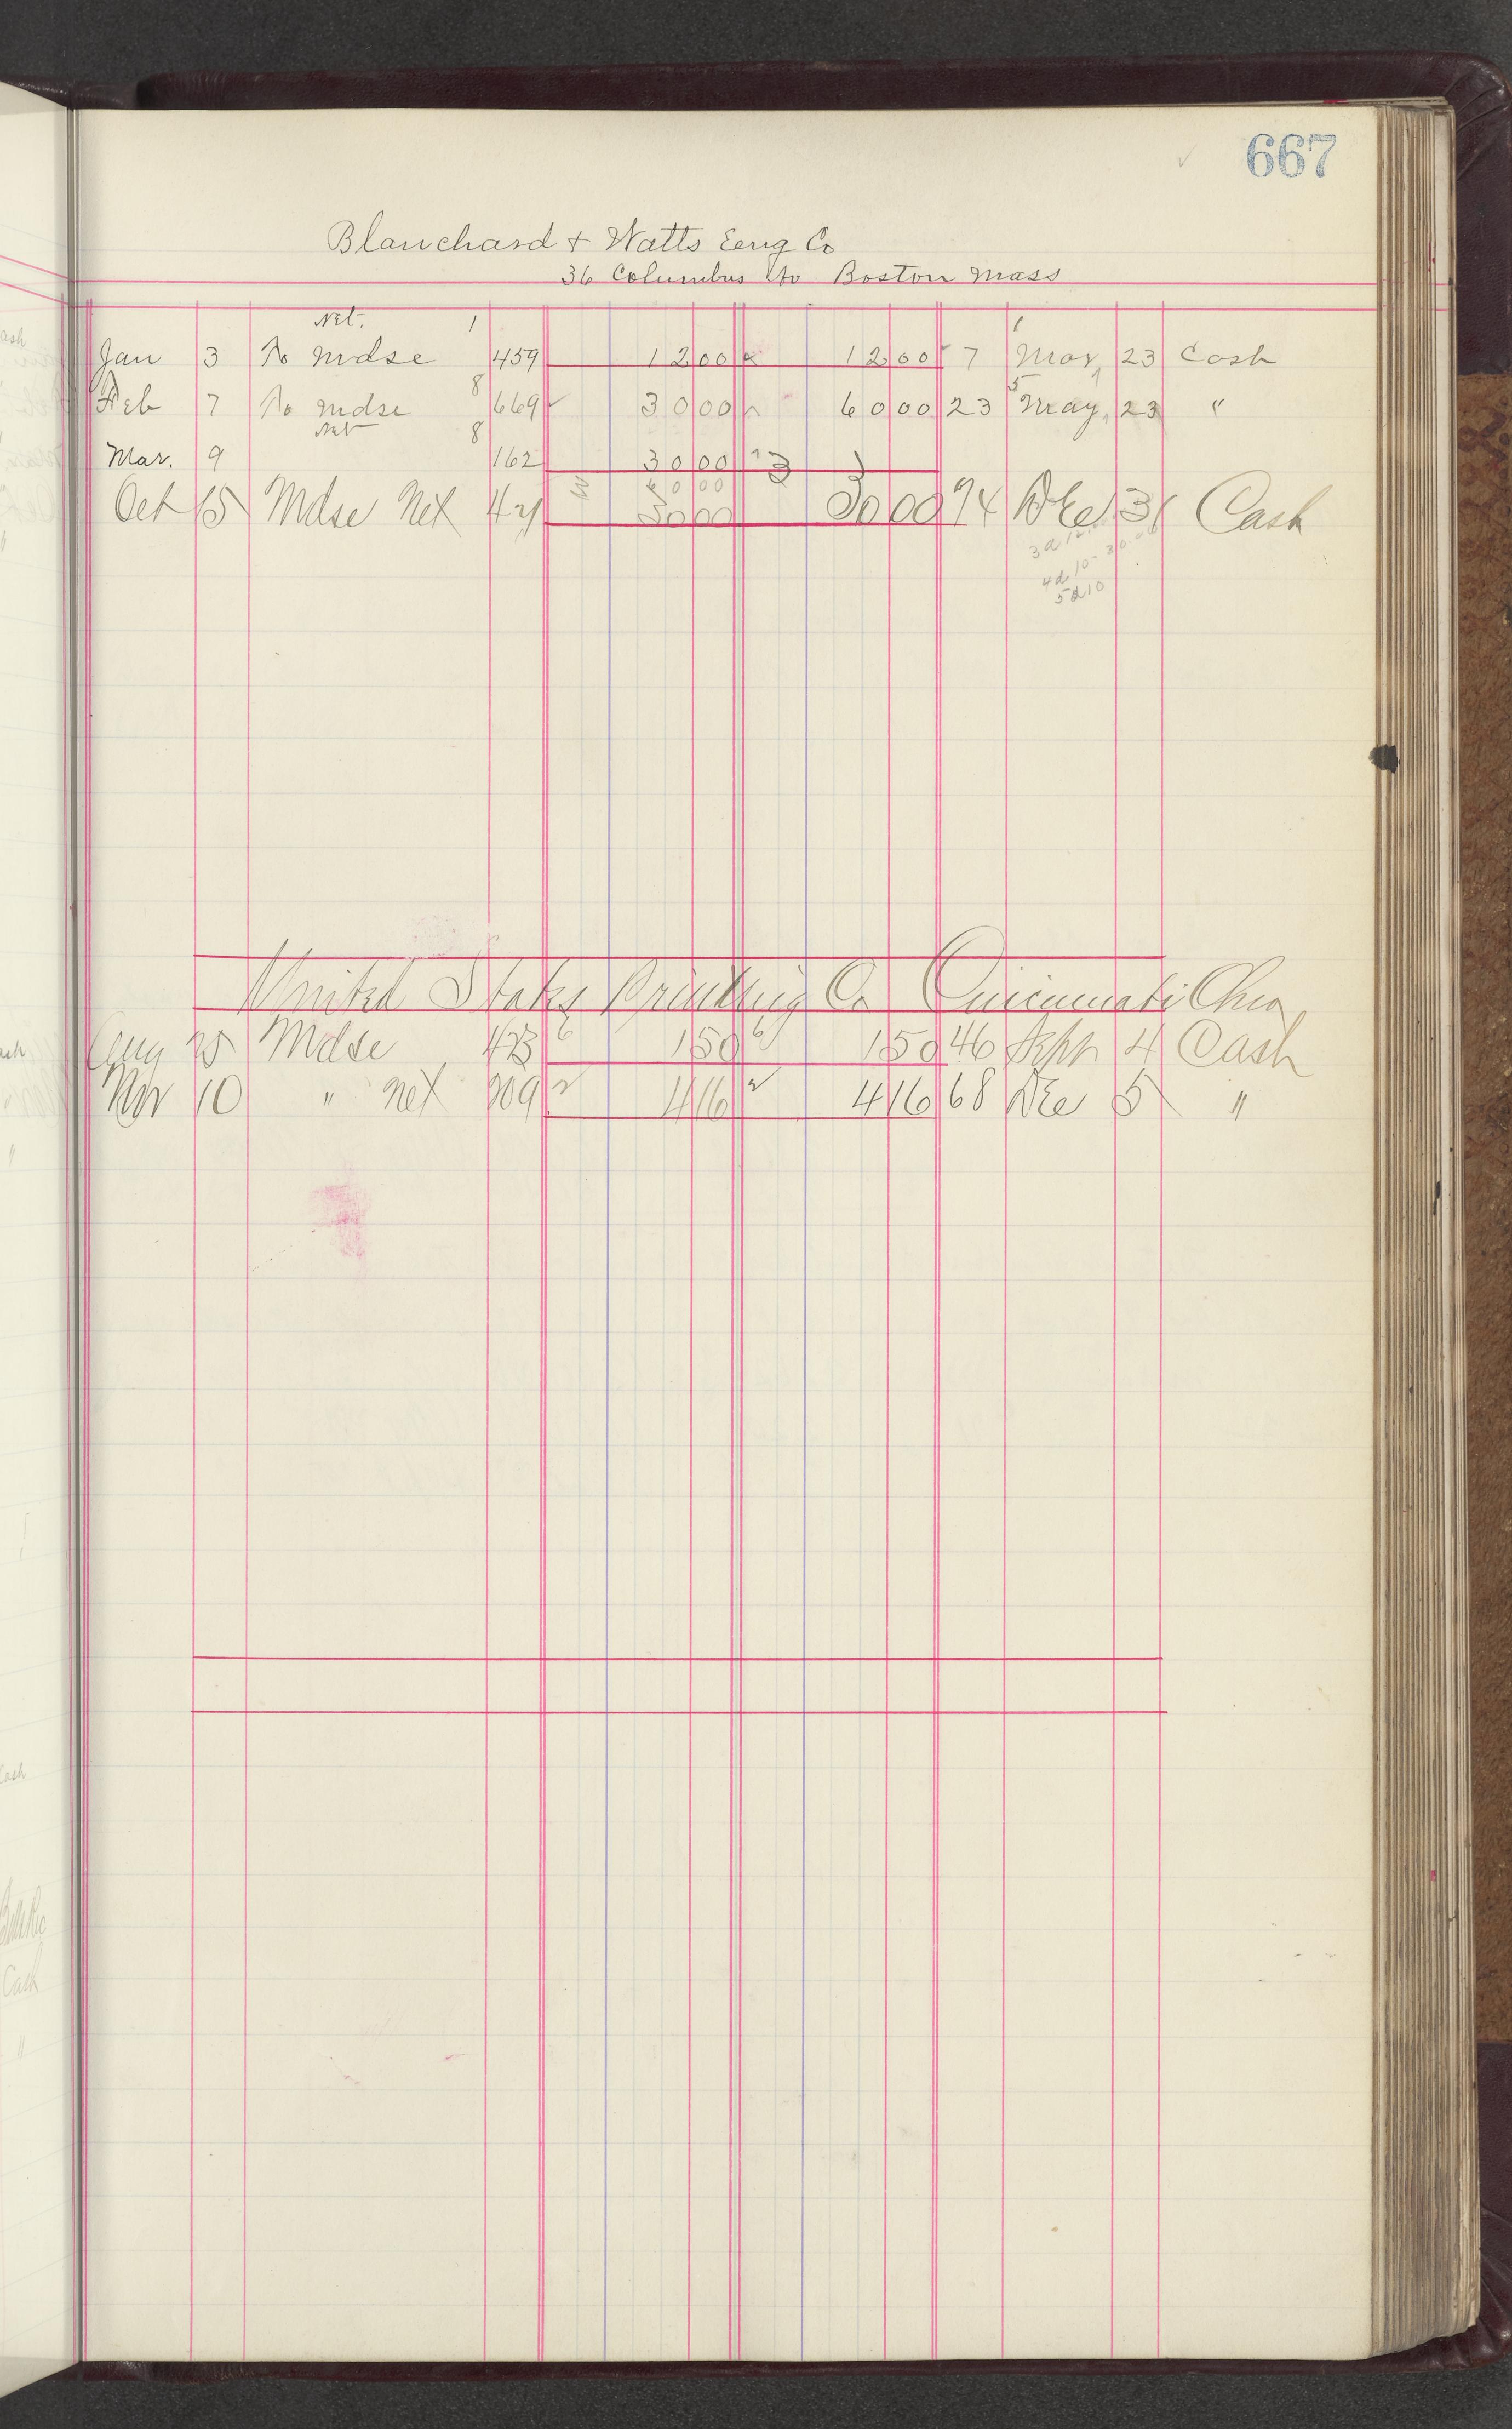 667
Blanchard + Watts Eng Co
36 Columbus Av Boston Mass
Net. 1 1
Jan 3 To mdse 459 12 00 12 00 7 Mar 23 Cash
8 5
Feb 7 To mdse 669 30 00 60 00 23 May 23 "
Net 8
Mar. 9 162 30 00 3
60 00
Oct 15 Mdse Net 421 30 00 30 00 74 Dec 31 Cash
4d 10 - 30.00
5d 10
United States Printing Co Cincinnati Ohio
Aug 25 Mdse 423 6 1 50 6 1 50 46 Sept 4 Cash
Nov 10 " Net 709 2 4 16 2 4 16 68 Dec 5 "